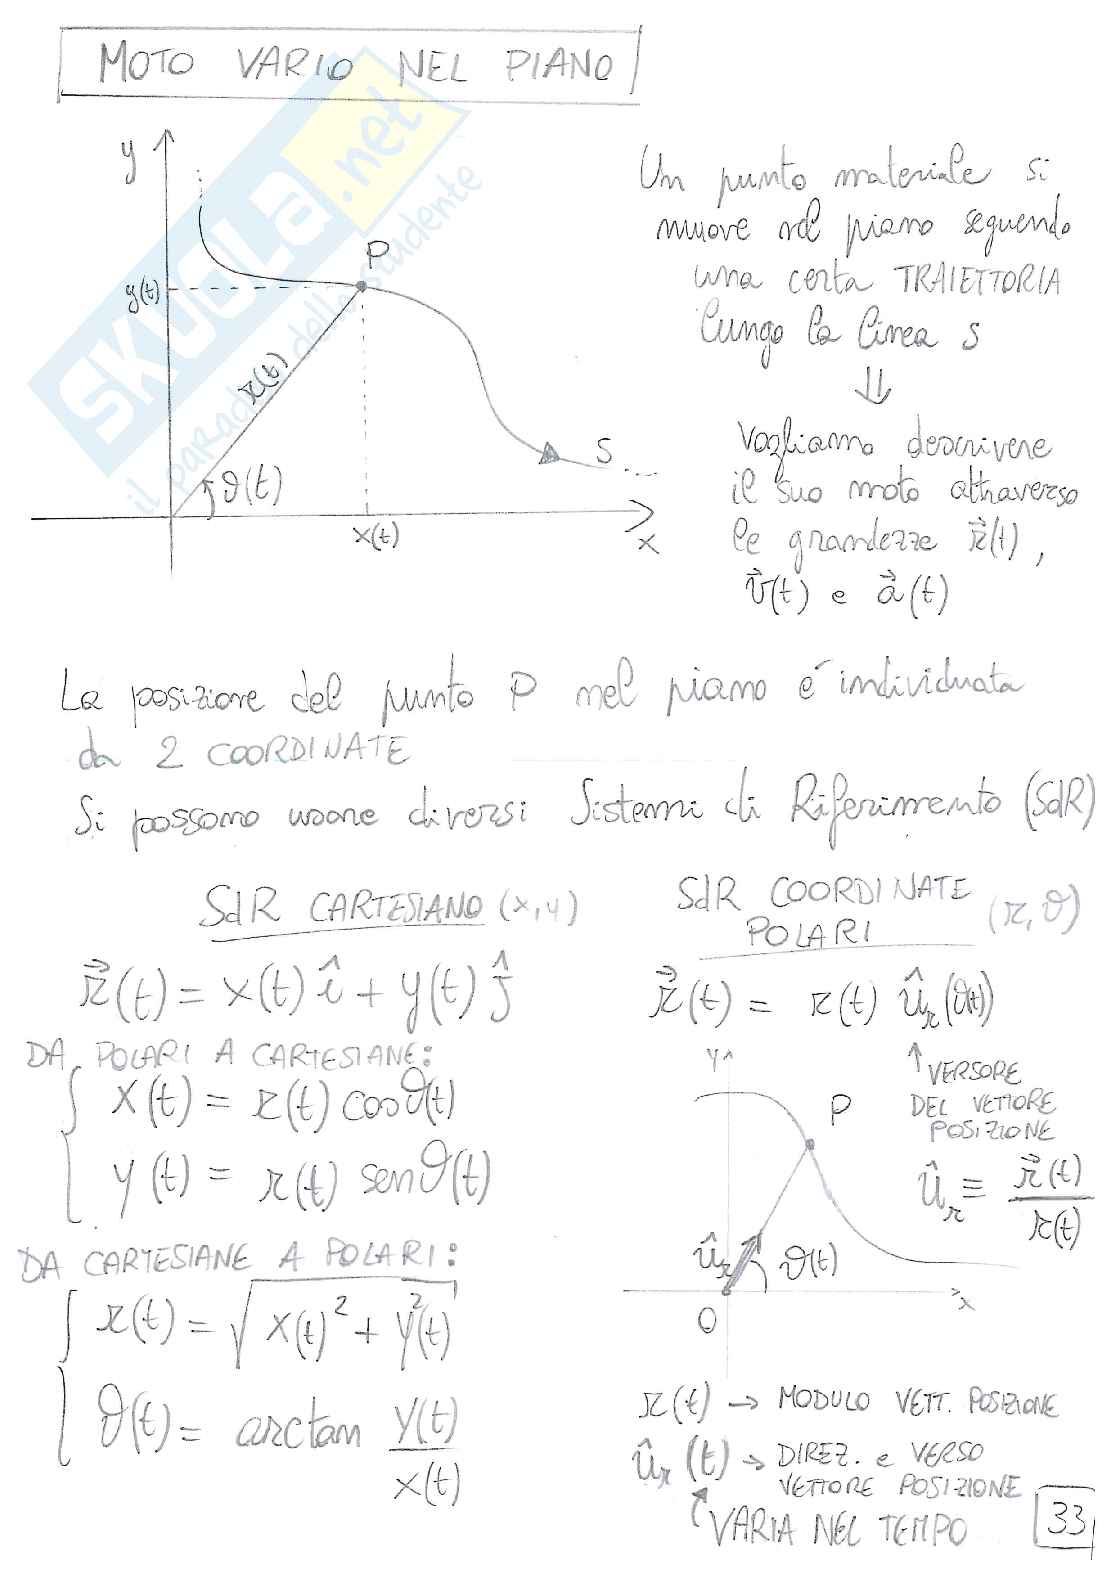 MOTO VARIO NEL PIANO
SKUOLA.net
il paradiso dello studente
y
y(t)
P
r(t)
ϑ(t)
S
x(t)
x
Un punto materiale si
muove nel piano seguendo
una certa TRAIETTORIA
lungo la linea s
⇓
Vogliamo descrivere
il suo moto attraverso
le grandezze r⃗(t),
v⃗(t) e a⃗(t)
La posizione del punto P nel piano é individuata
da 2 COORDINATE
Si possono usare diversi Sistemi di Riferimento (SdR)
SdR CARTESIANO (x,y)
r⃗(t) = x(t) î + y(t) ĵ
DA POLARI A CARTESIANE:
x(t) = r(t) cosϑ(t)
y(t) = r(t) senϑ(t)
DA CARTESIANE A POLARI:
r(t) = √(x(t)² + y²(t))
ϑ(t) = arctan y(t)/x(t)
SdR COORDINATE
POLARI (r,ϑ)
r⃗(t) = r(t) ûr(ϑ(t))
↑ VERSORE
DEL VETTORE
POSIZIONE
ûr ≡ r⃗(t)/r(t)
y
P
ûr
ϑ(t)
O
x
r(t) → MODULO VETT. POSIZIONE
ûr(t) → DIREZ. e VERSO
VETTORE POSIZIONE
VARIA NEL TEMPO
33